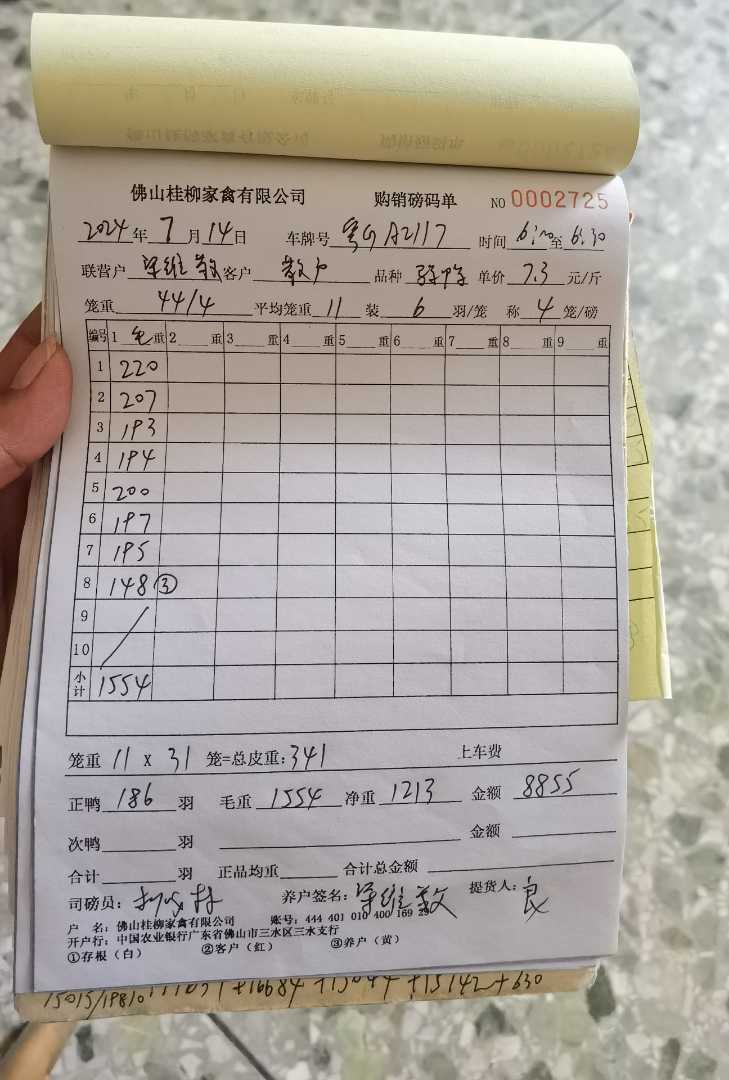 佛山桂柳家禽有限公司 购销磅码单 NO 0002725
2024年 7 月 14 日 车牌号 粤G A2117 时间 至 6:30
联营户 梁维 客户 散户 品种 单价 7.3 元/斤
笼重 44/4 平均笼重 11 装 6 羽/笼 称 4 笼/磅
编号 1 毛 重 2 重 3 重 4 重 5 重 6 重 7 重 8 重 9 重
1 220
2 207
3 193
4 194
5 200
6 197
7 195
8 148 ③
9
10
小计 1554
笼重 11 x 31 笼=总皮重:341 上车费
正鸭 186 羽 毛重 1554 净重 1213 金额 8855
次鸭 羽 金额
合计 羽 正品均重 合计总金额
司磅员: 养户签名: 梁维 提货人: 良
户 名: 佛山桂柳家禽有限公司 账号: 444 401 010 400 169 29
开户行: 中国农业银行广东省佛山市三水区三水支行
①存根(白) ②客户(红) ③养户(黄)
+16684 +15142+630